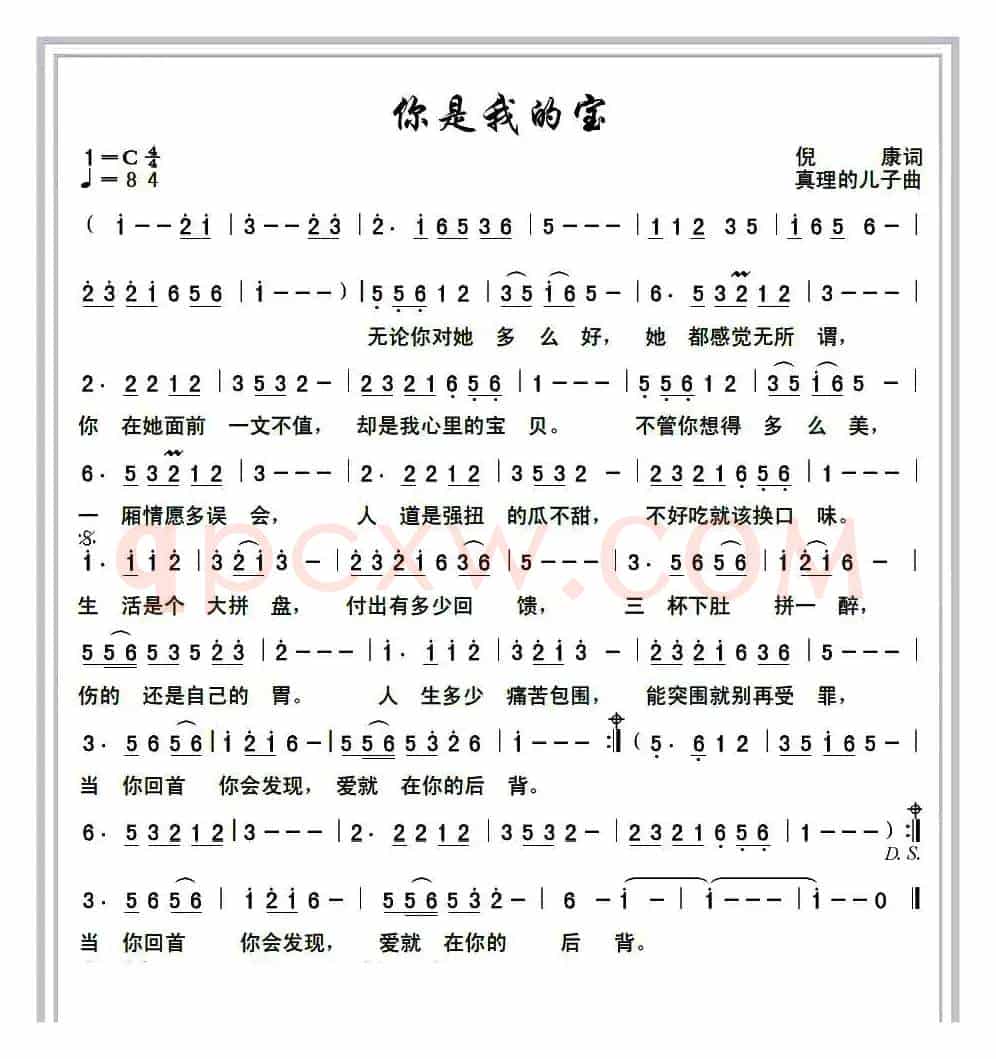 你是我的宝
1=C 4/4
♩=84
倪 康词
真理的儿子曲
( i - - 2̇ i | 3̇ - - 2̇ 3̇ | 2̇ · i 6 5 3 6 | 5 - - - | 1 1 2 3 5 | i 6 5 6 - |
2̇ 3̇ 2̇ i 6 5 6 | i - - - ) | 5 5 6 1 2 | 3 5 i 6 5 - | 6 · 5 3 2 1 2 | 3 - - - |
无论你对她 多 么 好, 她 都感觉无所 谓,
2 · 2 2 1 2 | 3 5 3 2 - | 2 3 2 1 6 5 6 | 1 - - - | 5 5 6 1 2 | 3 5 i 6 5 - |
你 在她面前 一文不值, 却是我心里的宝 贝。 不管你想得 多 么 美,
6 · 5 3 2 1 2 | 3 - - - | 2 · 2 2 1 2 | 3 5 3 2 - | 2 3 2 1 6 5 6 | 1 - - - |
一 厢情愿多误 会, 人 道是强扭 的瓜不甜, 不好吃就该换口 味。
qpcxw.com
i · i i 2̇ | 3̇ 2̇ i 3̇ - | 2̇ 3̇ 2̇ i 6 3 6 | 5 - - - | 3 · 5 6 5 6 | i 2̇ i 6 - |
生 活是个 大拼 盘, 付出有多少回 馈, 三 杯下肚 拼一 醉,
5 5 6 5 3 5 2̇ 3̇ | 2̇ - - - | i · i i 2̇ | 3̇ 2̇ i 3̇ - | 2̇ 3̇ 2̇ i 6 3 6 | 5 - - - |
伤的 还是自己的 胃。 人 生多少 痛苦包围, 能突围就别再受 罪,
3 · 5 6 5 6 | i 2̇ i 6 - | 5 5 6 5 3̇ 2̇ 6 | i - - - :| ( 5 · 6 1 2 | 3 5 i 6 5 - |
当 你回首 你会发现, 爱就 在你的后 背。
6 · 5 3 2 1 2 | 3 - - - | 2 · 2 2 1 2 | 3 5 3 2 - | 2 3 2 1 6 5 6 | 1 - - - ) :|
D. S.
3 · 5 6 5 6 | i 2̇ i 6 - | 5 5 6 5 3̇ 2̇ - | 6 - i - | i - - - | i - - 0 ‖
当 你回首 你会发现, 爱就 在你的 后 背。